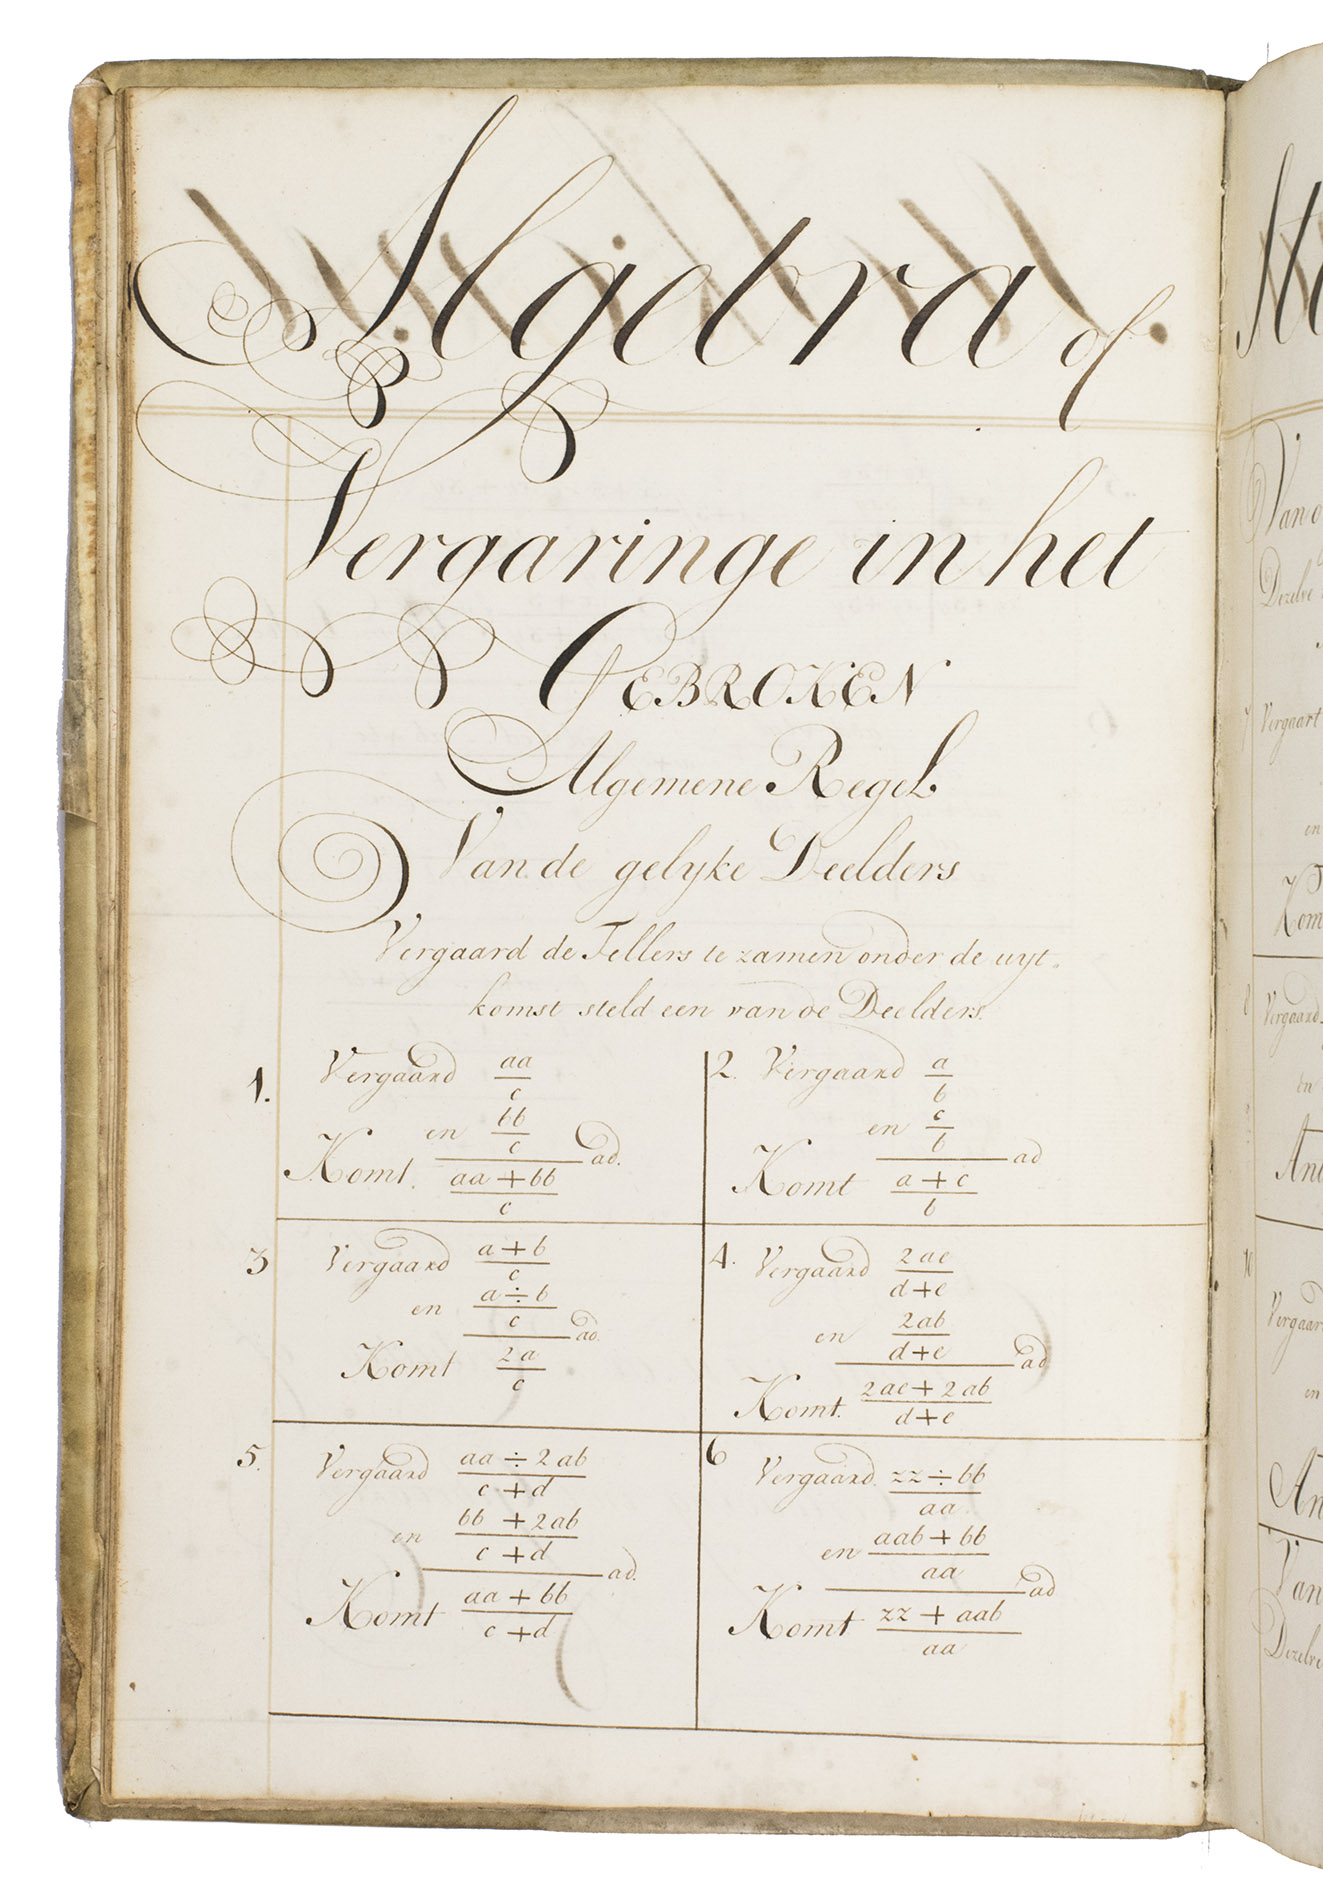 Algebra of
Vergaringe in het
GEBROKEN
Algemene Regel.
Van de gelyke Deelders
Vergaard de Tellers te zamen onder de uyt-
komst steld een van de Deelders.
1. Vergaard aa/c
en bb/c ad.
Komt. aa + bb/c
2. Vergaard a/b
en c/b ad
Komt a + c/b
3 Vergaard a + b/c
en a ÷ b/c ad.
Komt 2a/c
4. Vergaard 2ae/d+e
en 2ab/d+e ad
Komt. 2ae + 2ab/d+e
5. Vergaard aa ÷ 2ab/c + d
en bb + 2ab/c + d ad.
Komt aa + bb/c + d
6 Vergaard. zz ÷ bb/aa
en aab + bb/aa ad
Komt zz + aab/aa
Van
Dezelve
7 Vergaart
en
Kom
8 Vergaard
en
An
10
Vergaar
en
An
Van
Dezelve